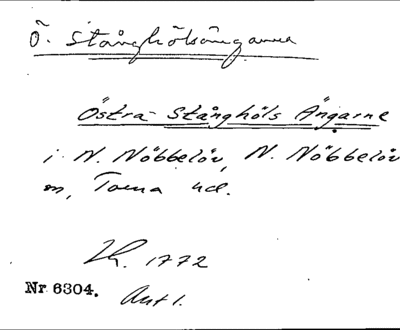 Ö. Stånghölsängarna
Östra Stånghöls Ängarne
i N. Nöbbelöv, N. Nöbbelöv
sn, Torna hd.
Lk. 1772
Nr 6304. Akt 1.